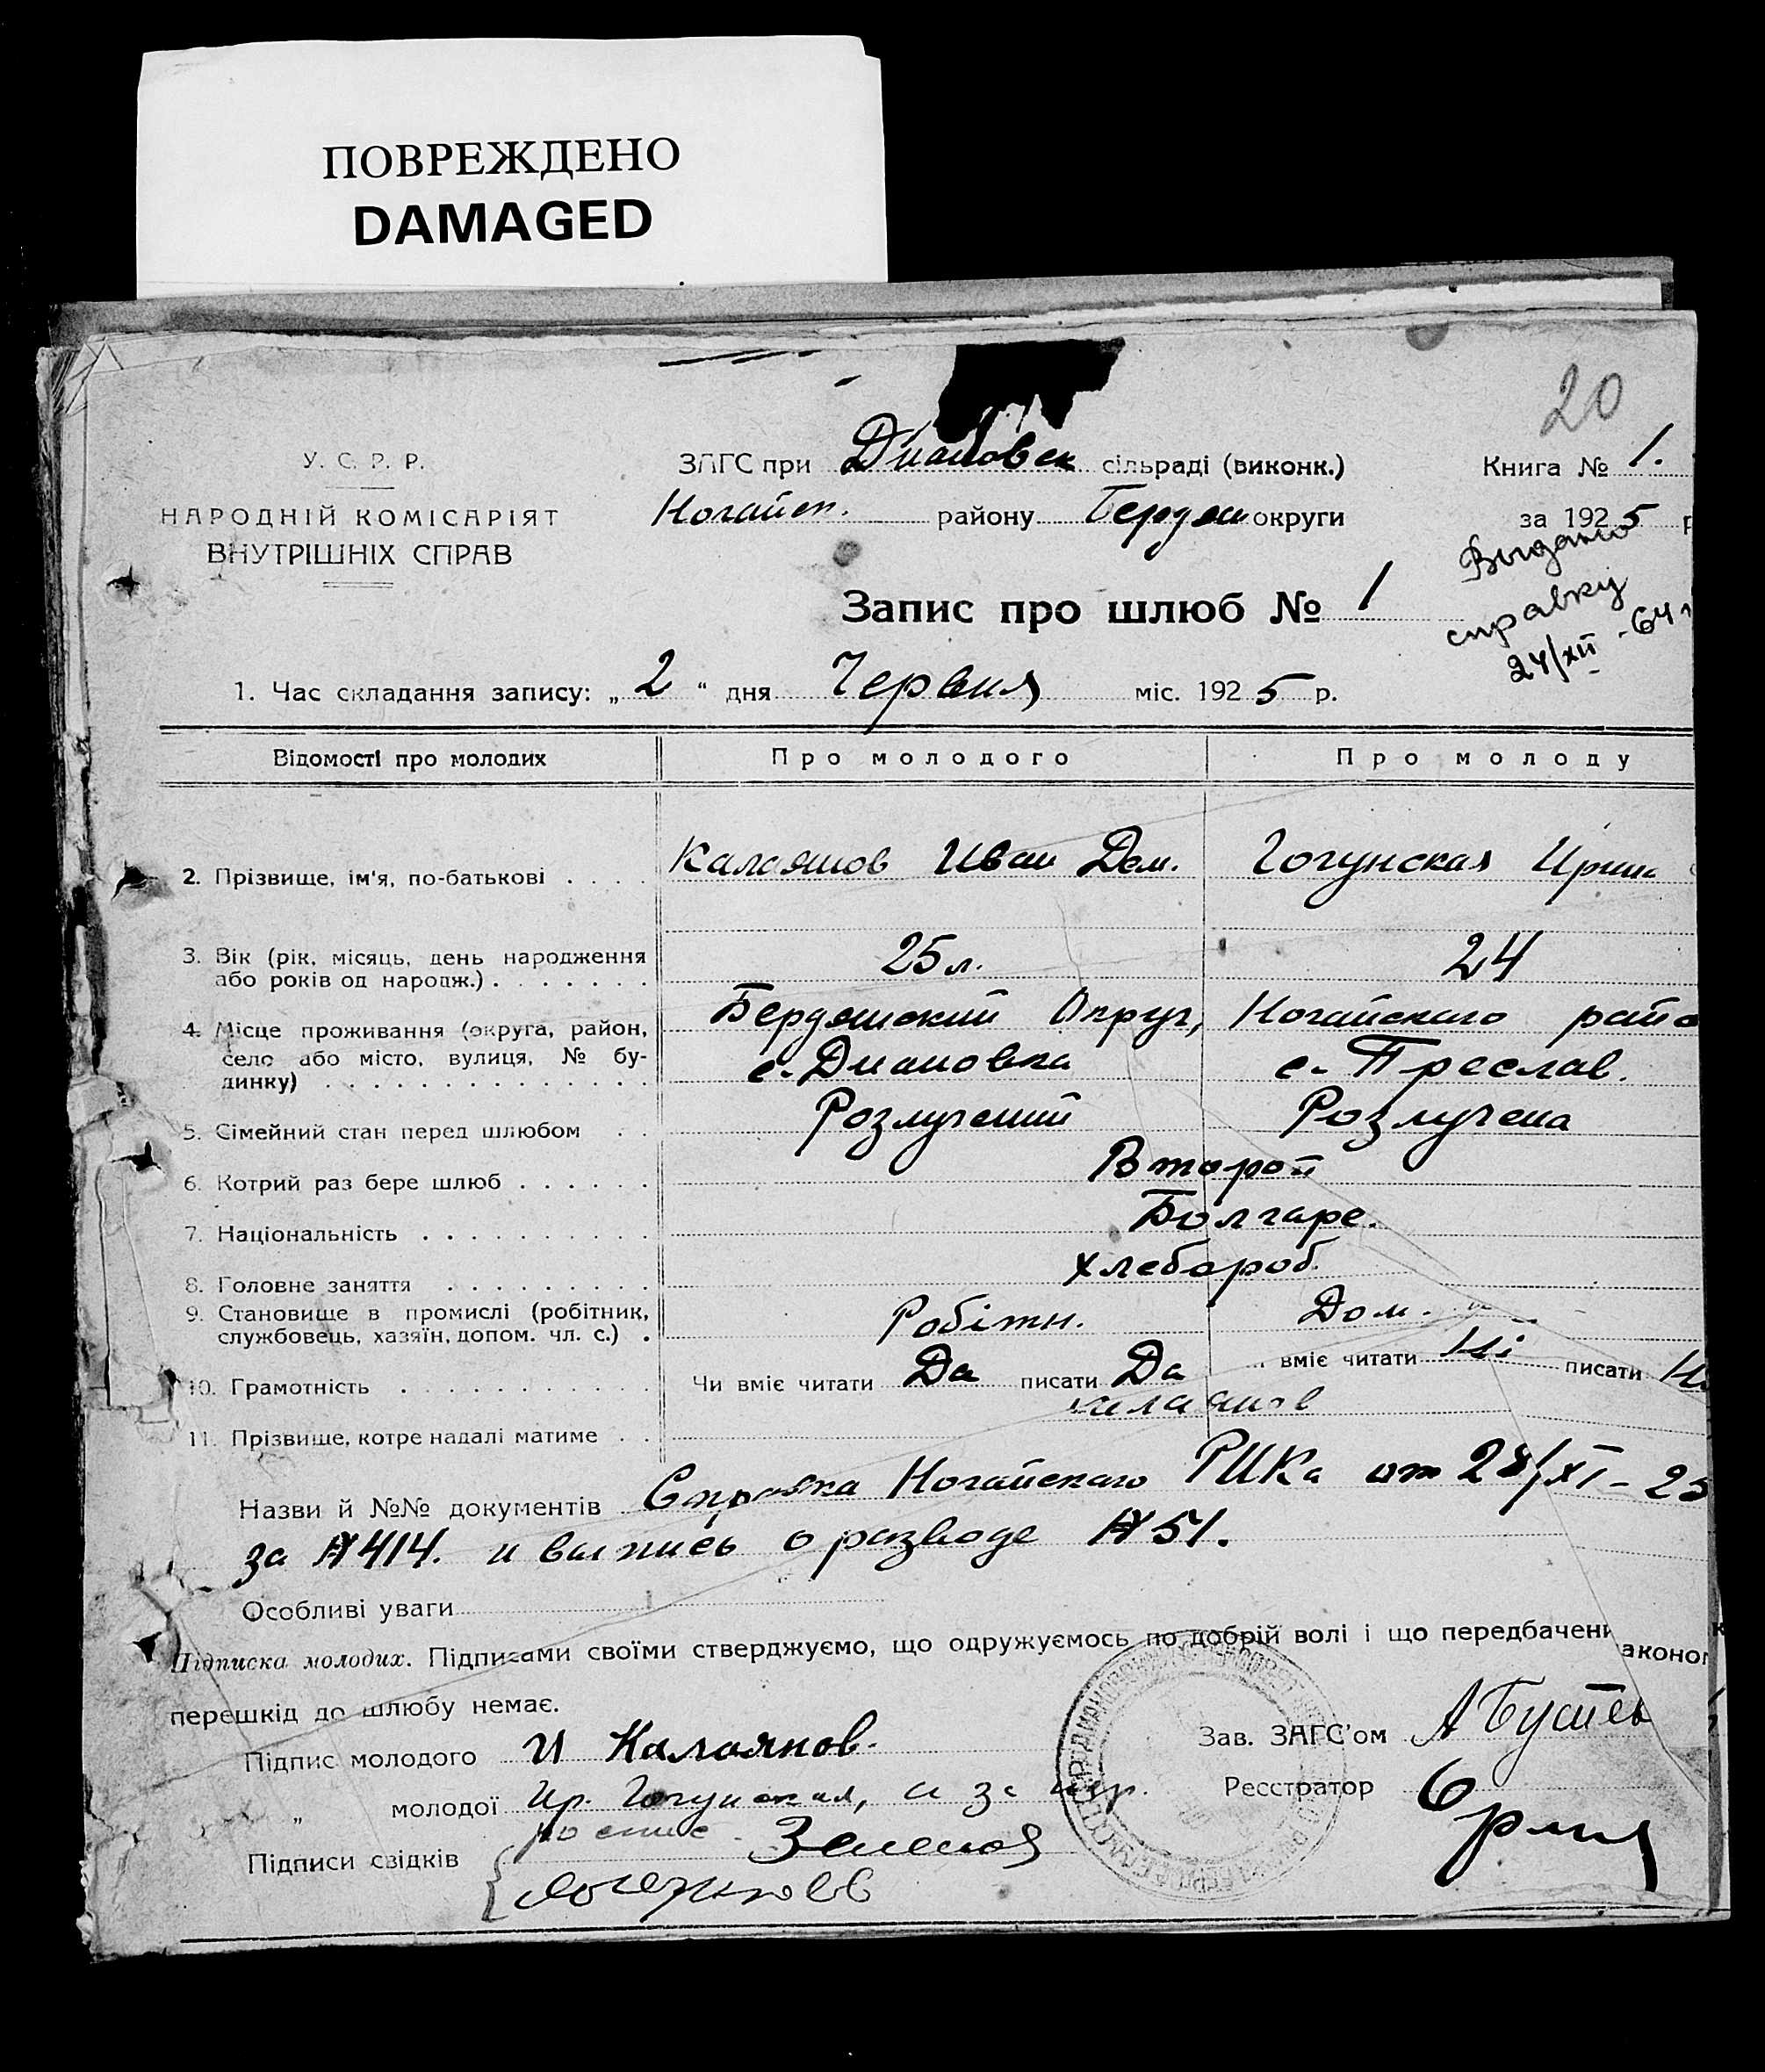 ПОВРЕЖДЕНО
DAMAGED
20
У. С. Р. Р.
НАРОДНІЙ КОМІСАРІЯТ
ВНУТРІШНІХ СПРАВ
ЗАГС при Диановск сільраді (виконк.)
Ногайск. району Бердян округи
Книга № 1.
за 1925 р
Выдано
справку
24/XII -64 г
Запис про шлюб № 1
1. Час складання запису: „ 2 “ дня Червня міс. 1925 р.
Відомості про молодих Про молодого Про молоду
2. Прізвище, ім'я, по-батькові . . . . Калоянов Иван Дем. Гогунская Ирина
3. Вік (рік, місяць, день народження
або років од народж.) . . . . . . . 25 л. 24
4. Місце проживання (округа, район, Бердянский Округ, Ногайского райо
село або місто, вулиця, № бу- с. Диановка с. Преслав.
динку) . . . . . . . . . . . . . .
5. Сімейний стан перед шлюбом . . Розлучений Розлучена
6. Котрий раз бере шлюб . . . . . . Второй
7. Національність . . . . . . . . . . Болгаре.
8. Головне заняття . . . . . . . . . хлебороб.
9. Становище в промислі (робітник,
службовець, хазяїн, допом. чл. с.) . Робітн. Дом.
10. Грамотність . . . . . . . . . . . Чи вміє читати Да писати Да вміє читати Ні писати Н
11. Прізвище, котре надалі матиме . . Калоянов
Назви й №№ документів Справка Ногайскаго РИКа от 28/XI-25
за №414. и выпись о разводе №51.
Особливі уваги
Підписка молодих. Підписами своїми стверджуємо, що одружуємось по добрій волі і що передбачени аконом
перешкід до шлюбу немає.
Підпис молодого И Калоянов.
„ молодої Ир. Гогунская, а за нгр.
Підписи свідків
Зав. ЗАГС'ом
Реєстратор